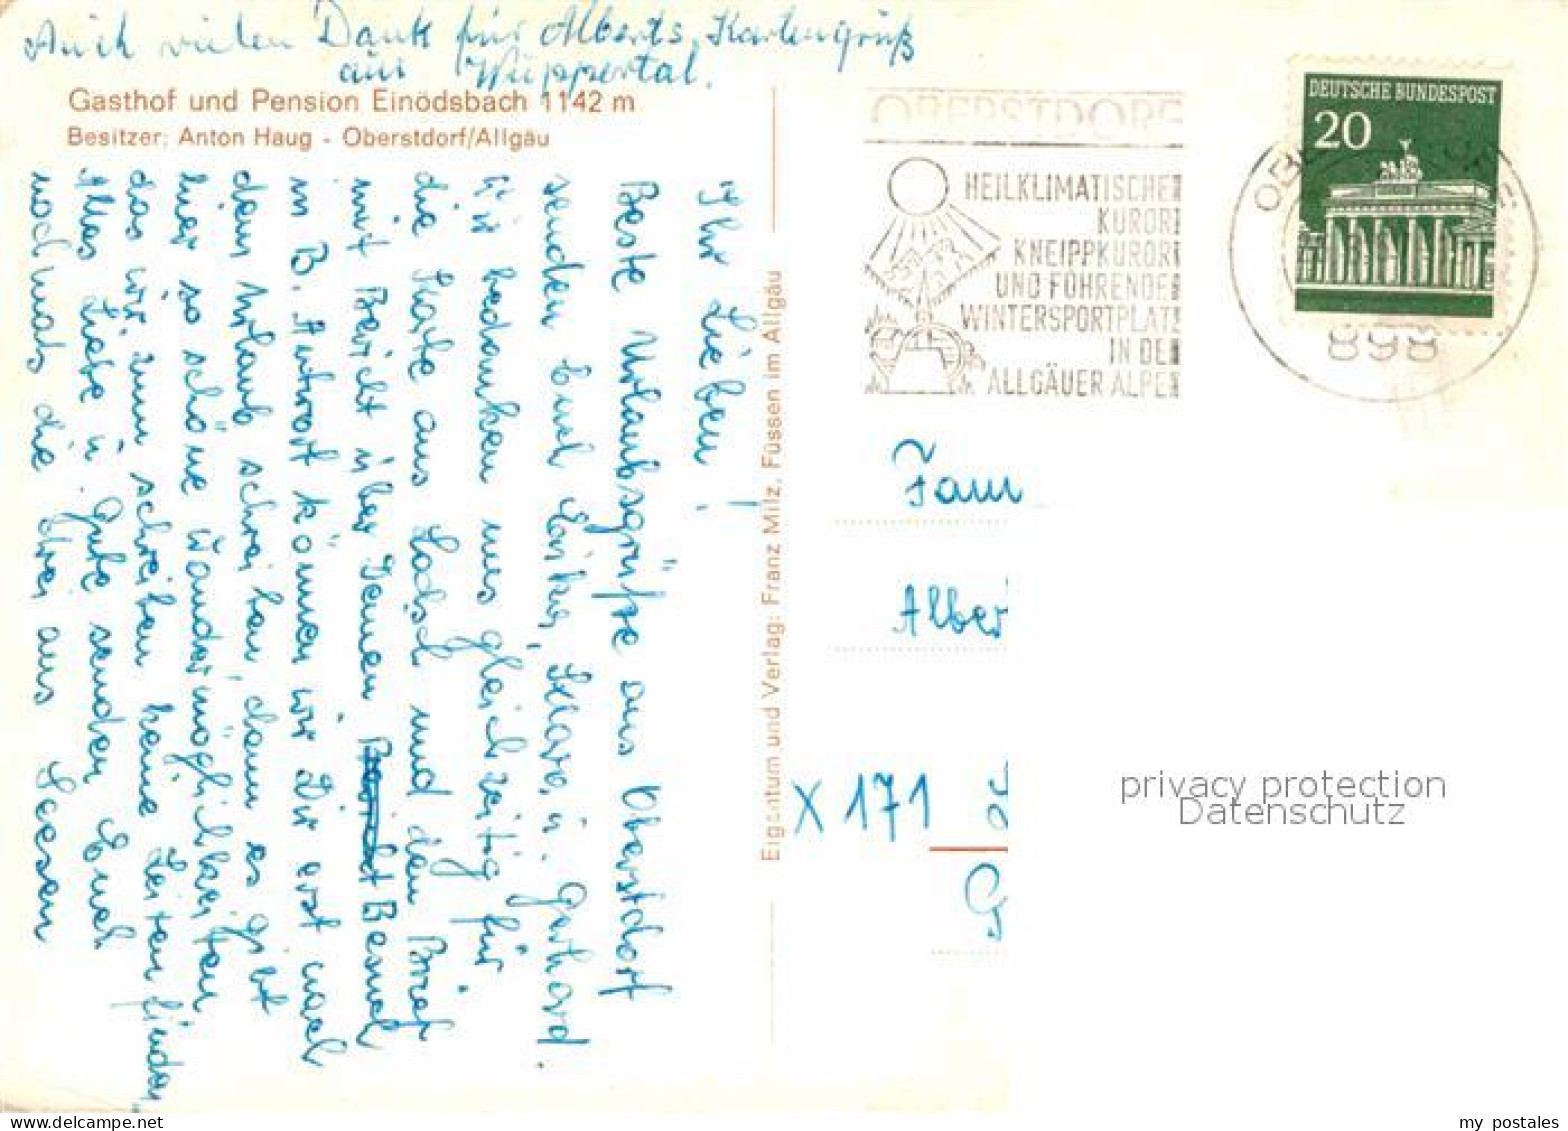 Auch vielen Dank für Alberts Kartengruß
aus Wuppertal.
Gasthof und Pension Einödsbach 1142 m
Besitzer: Anton Haug - Oberstdorf/Allgäu
Ihr Lieben!
Beste Urlaubsgrüße aus Oberstdorf
senden Euch Erika, Klara u. Gerhard.
Wir bedanken uns gleichzeitig für
die Karte aus und den Brief
mit Bericht über Deinen Besuch
in B. Antwort können wir Dir erst nach
dem Urlaub schreiben, denn es gibt
hier so schöne Wandermöglichkeiten
das wir zum schreiben keine Zeiten finden
Alles Liebe u. Gute senden Euch
nochmals die drei aus Seesen
Eigentum und Verlag: Franz Milz, Füssen im Allgäu
OBERSTDORF
HEILKLIMATISCHER
KURORT
KNEIPPKURORT
UND FÜHRENDER
WINTERSPORTPLATZ
IN DE
ALLGÄUER ALPE
DEUTSCHE BUNDESPOST
20
898
Fam
Alber
X 171
G
privacy protection
Datenschutz
my postales